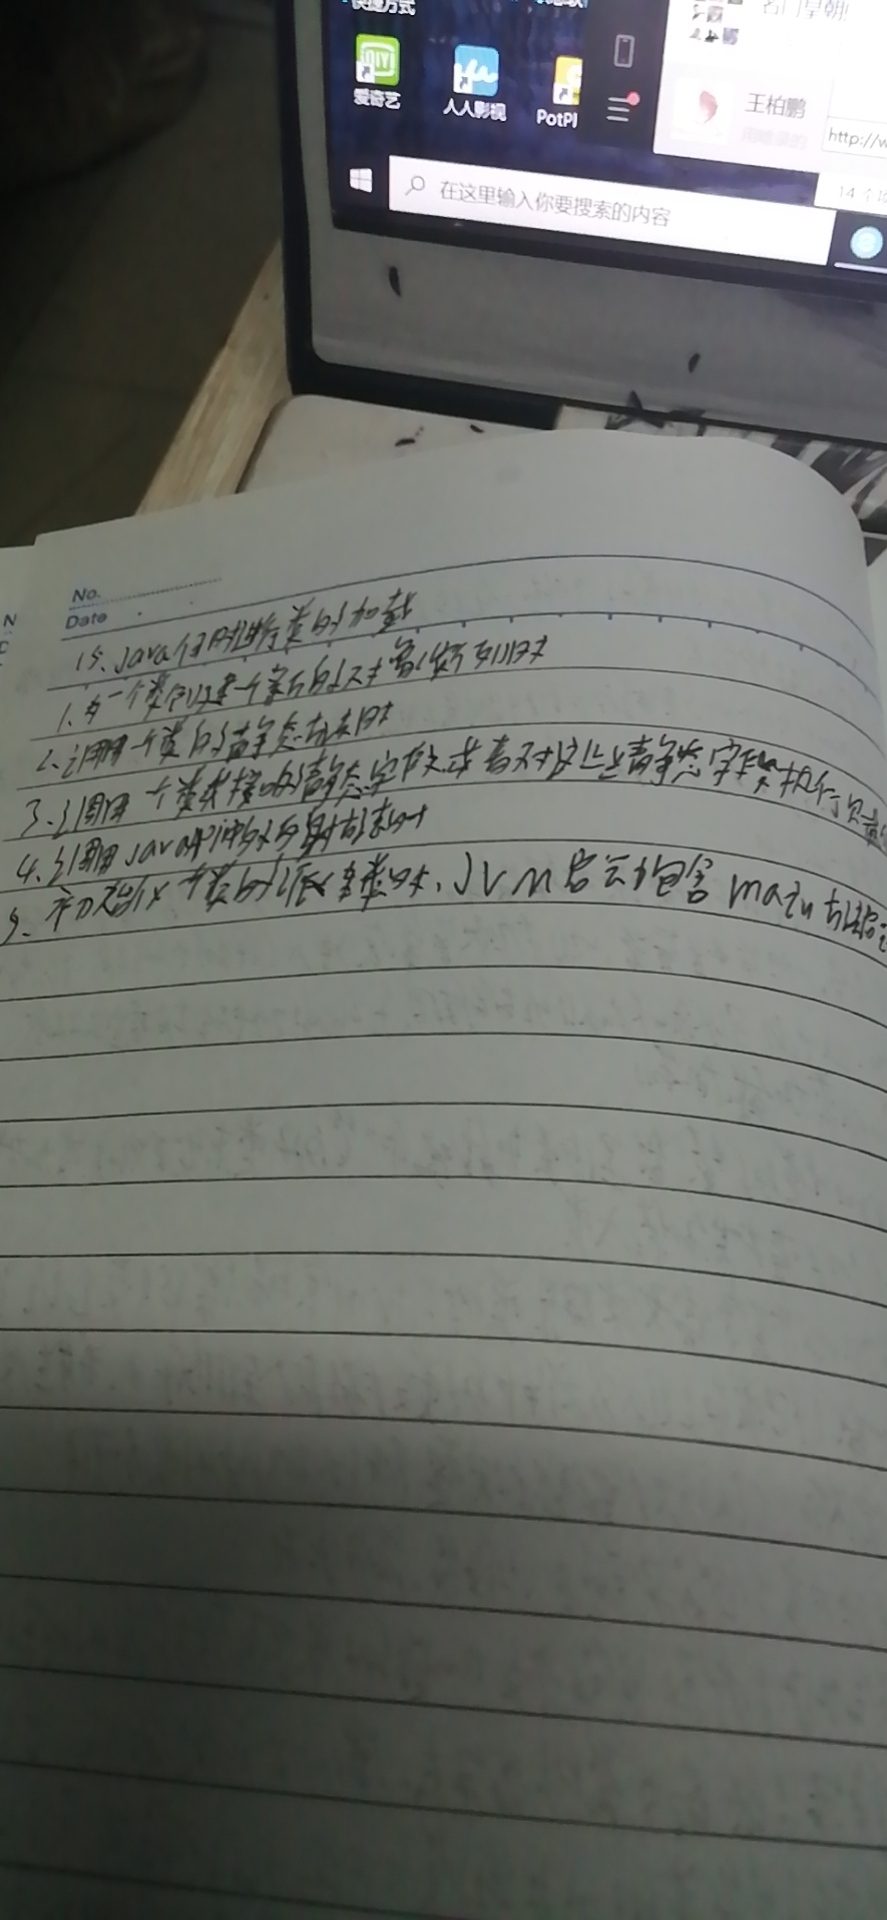 快捷方式
爱奇艺
人人影视
PotPl
王柏鹏
http://w
14 个项
在这里输入你要搜索的内容
No.
Date
15、Java何时进行类的加载
1、为一个类创建一个新的对象实例时
2、调用一个类的静态方法时
3、调用一个类或接口的静态字段或者对这些静态字段执行
4、调用Java API中的反射方法时
5、初始化一个类的派生类时、JVM启动包含main方法